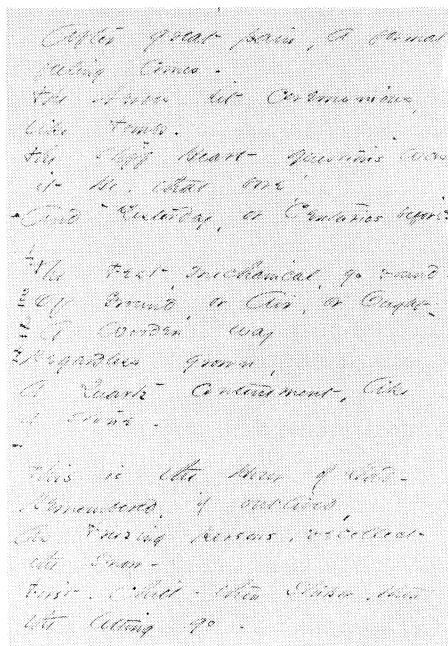 After great pain, a formal
feeling comes -
The Nerves sit Ceremonious,
like Tombs -
The stiff Heart questions was
it He, that bore,
And "Yesterday, or Centuries before"?
The Feet, mechanical, go round -
Of Ground, or Air, or Ought -
A Wooden way
Regardless grown,
A Quartz contentment, like
a stone -
This is the Hour of Lead -
Remembered, if outlived,
As Freezing persons, recollect
the Snow -
First - Chill - then Stupor - then
the letting go -